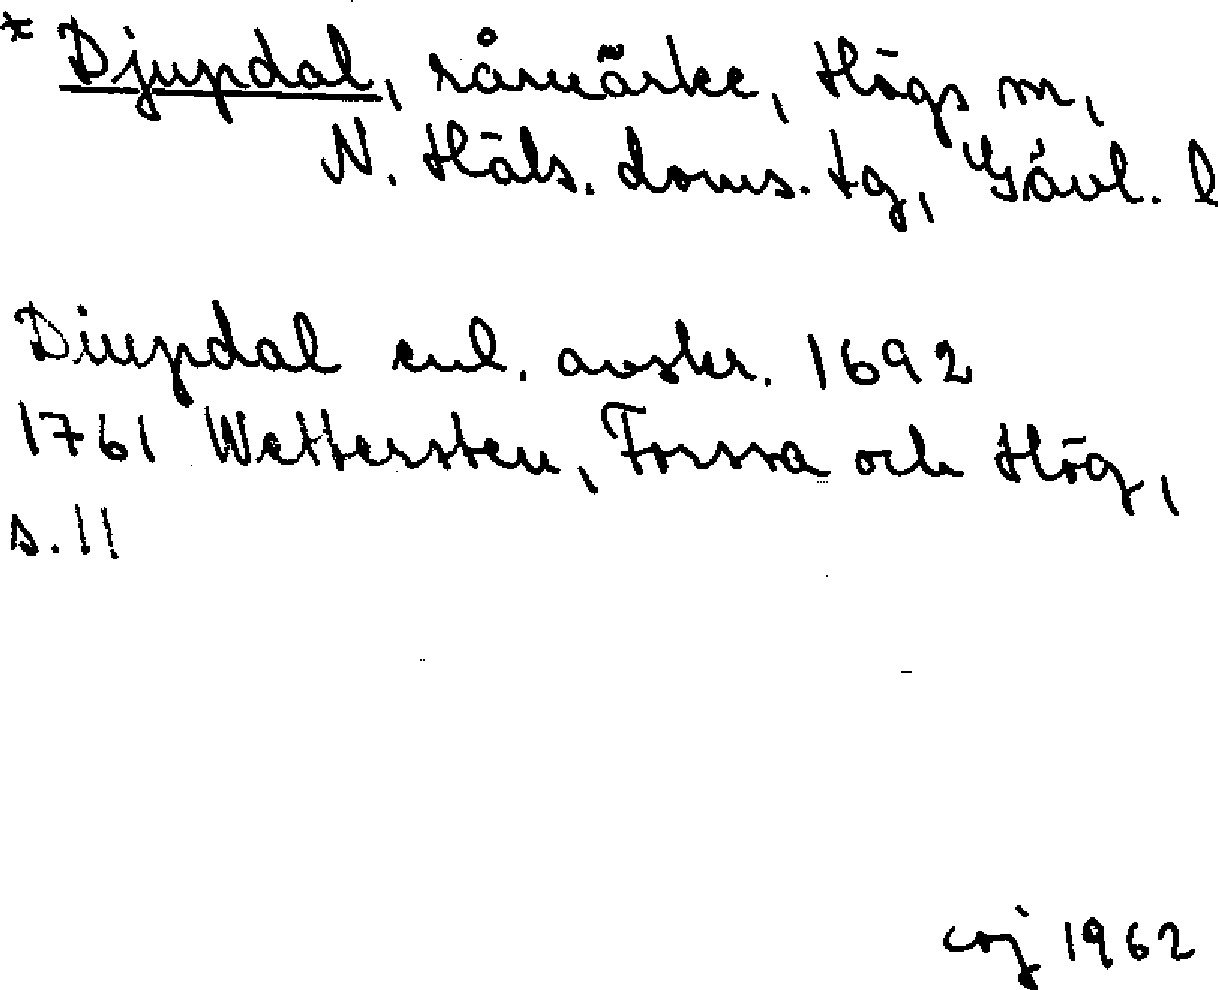 * Djupdal, råmärke, Högs sn,
N. Häls. doms. tg, Gävl. l
Diupdal enl. avskr. 1692
1761 Wettersten, Forssa och Hög,
s. 11
coj 1962